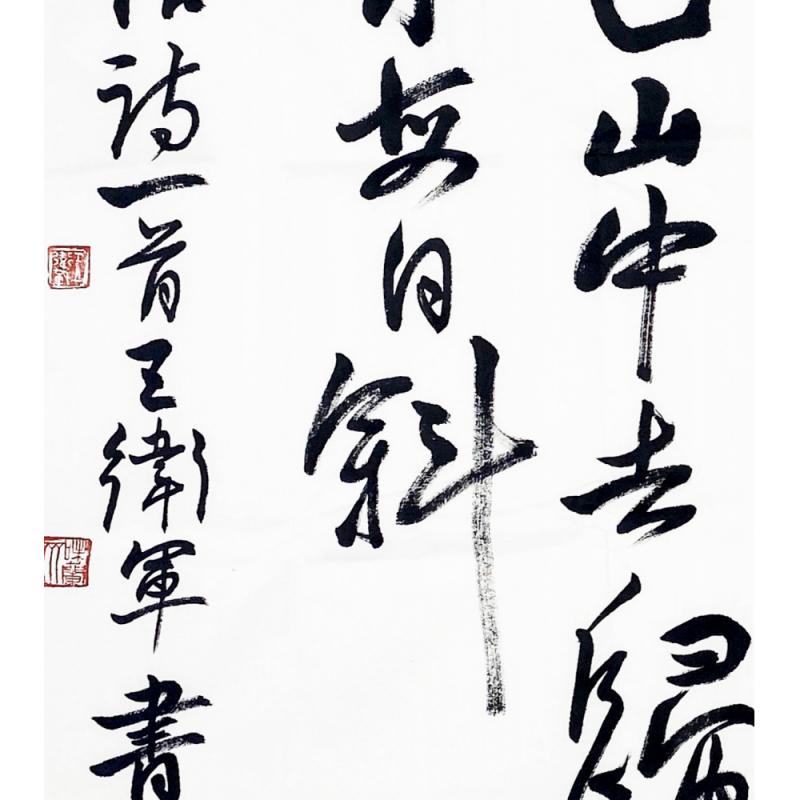 山中去歸
每日斜
詩一首王衛軍書